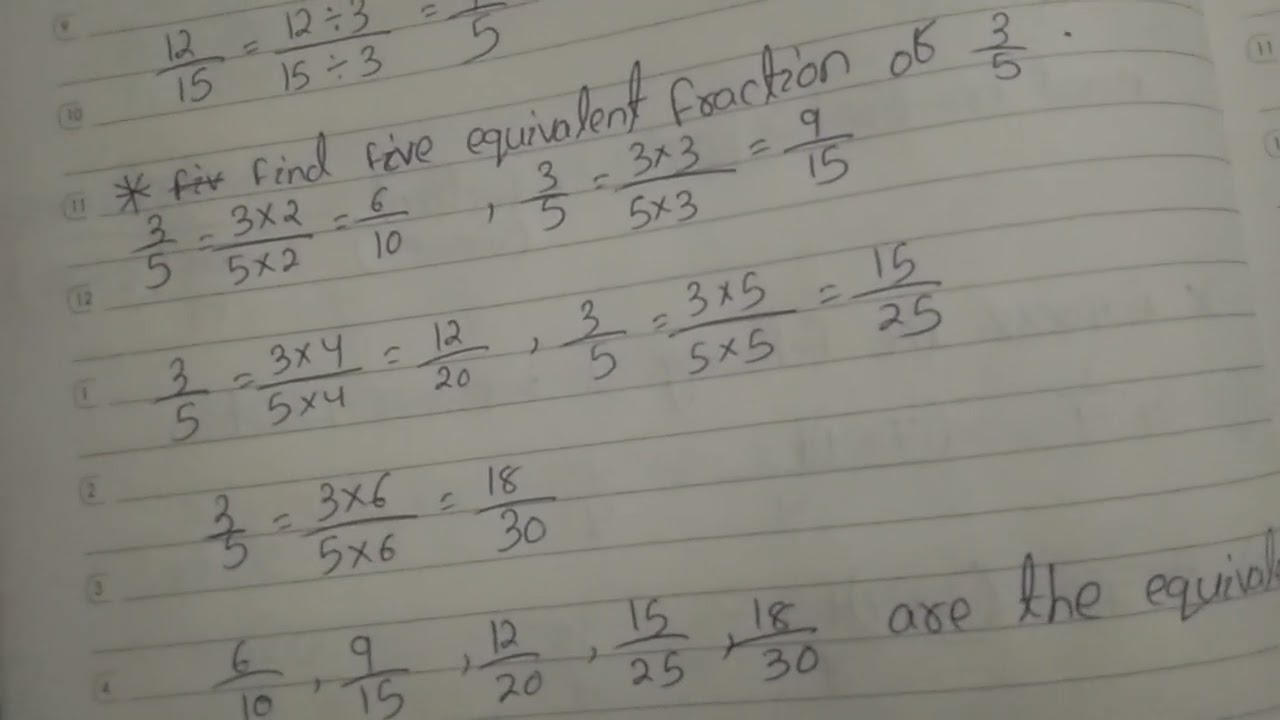 12/15 = 12÷3/15÷3 = /5
* fiv Find five equivalent fraction of 3/5 .
3/5 = 3×2/5×2 = 6/10 , 3/5 = 3×3/5×3 = 9/15
3/5 = 3×4/5×4 = 12/20 , 3/5 = 3×5/5×5 = 15/25
3/5 = 3×6/5×6 = 18/30
6/10 , 9/15 , 12/20 , 15/25 , 18/30 are the equival
9
10
11
12
1
2
3
4
11